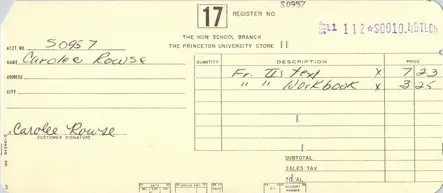 S0957
17 REGISTER NO.
THE HUN SCHOOL BRANCH
THE PRINCETON UNIVERSITY STORE
ACCT NO. S0957
NAME Carolee Rowse
ADDRESS
CITY
QUANTITY DESCRIPTION PRICE
Fr. II: text x 7 23
" " Workbook x 3 25
x Carolee Rowse
CUSTOMER SIGNATURE
SUBTOTAL
SALES TAX
TOTAL